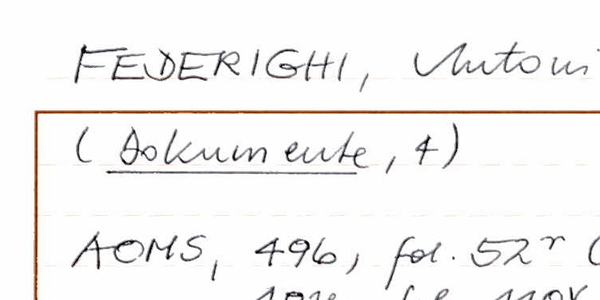 FEDERIGHI, Antoni
(Dokumente, 4)
AOMS, 496, fol. 52r (